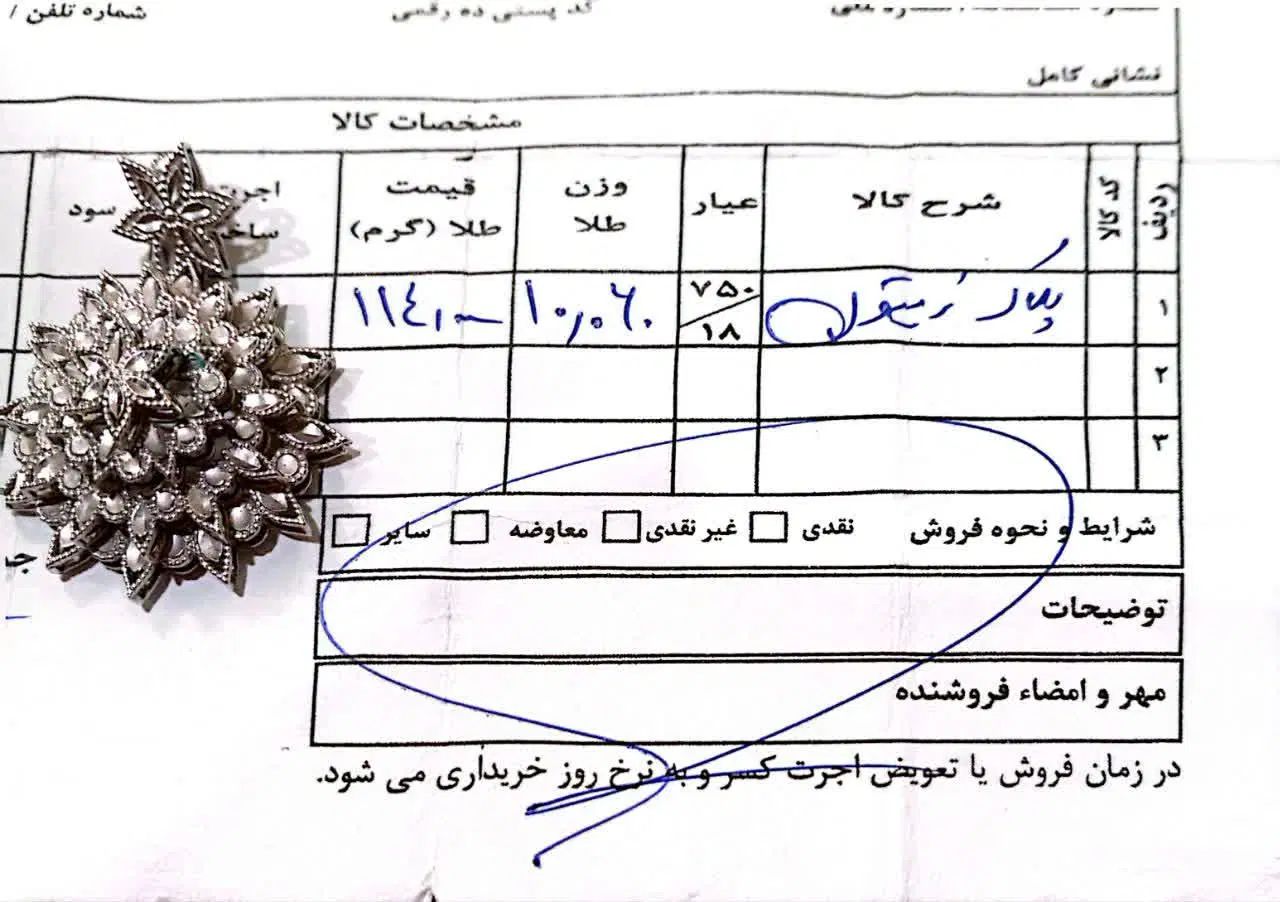 کد پستی ده رقمی شماره تلفن /
نشانی کامل
مشخصات کالا
ردیف کد کالا شرح کالا عیار وزن طلا قیمت طلا (گرم) اجرت سود
۱ پلاک ۷۵۰ ۱۸ ۱۰٫۰۶۰
۲
۳
شرایط و نحوه فروش نقدی غیر نقدی معاوضه سایر
توضیحات
مهر و امضاء فروشنده
در زمان فروش یا تعویض اجرت کسر و به نرخ روز خریداری می شود.